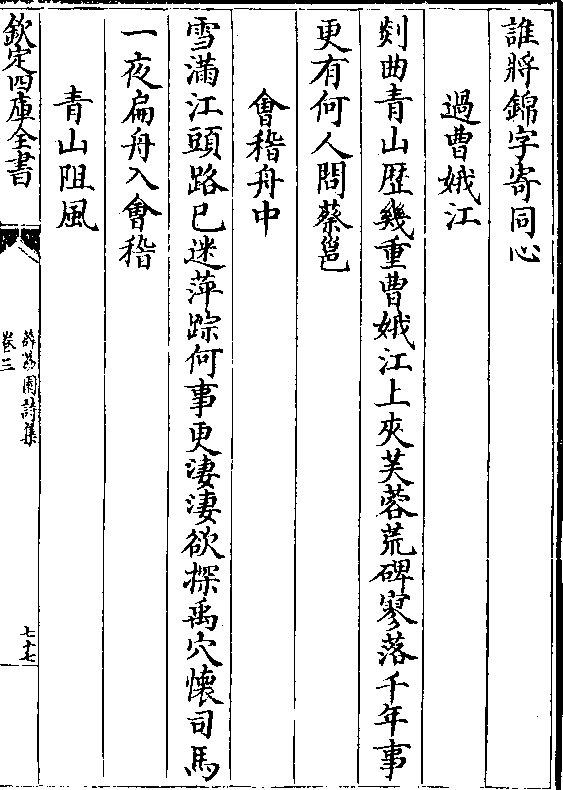 誰將錦字寄同心
過曹娥江
剡曲青山歴幾重曹娥江上夾芙蓉荒碑寥落千年事
更有何人問蔡邕
會稽舟中
雪滿江頭路已迷萍踪何事更淒淒欲探禹穴懷司馬
一夜扁舟入會稽
青山阻風
欽定四庫全書
薜荔園詩集
卷三
七十七